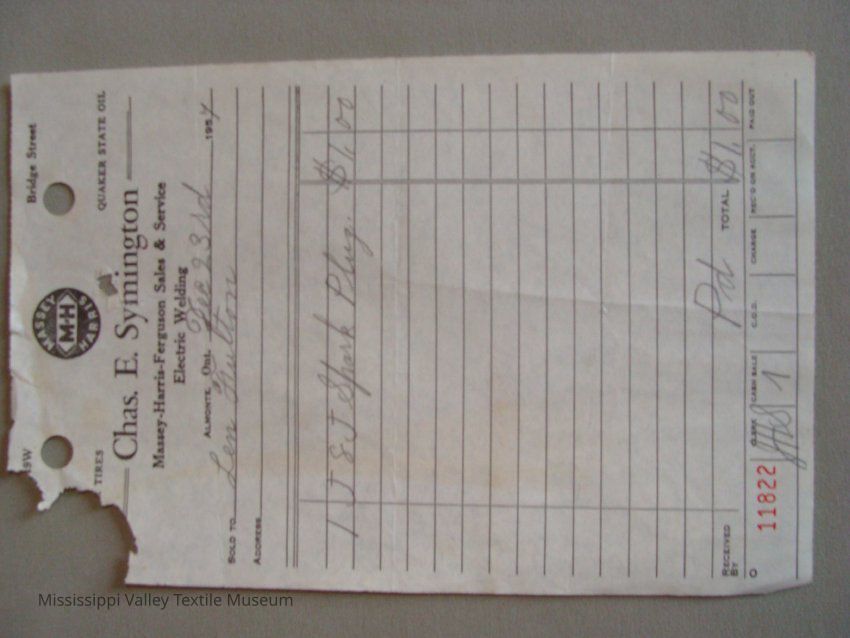 Bridge Street
MASSEY
M-H
HARRIS
TIRES
QUAKER STATE OIL
Chas. E. Symington
Massey-Harris-Ferguson Sales & Service
Electric Welding
ALMONTE, Ont. Dec 23rd 1957
SOLD TO Len Fulton
ADDRESS
1 J 8 J Spark Plug. $1.00
Pd TOTAL $1.00
RECEIVED
BY
CLERK CASH SALE C.O.D. CHARGE REC'D ON ACCT. PAID OUT
11822
Mississippi Valley Textile Museum